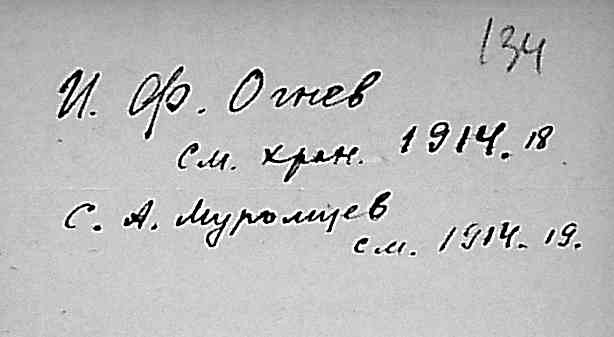 134
И. Ф. Огнев
см. хран. 1914.18
С. А. Муромцев
см. 1914.19.